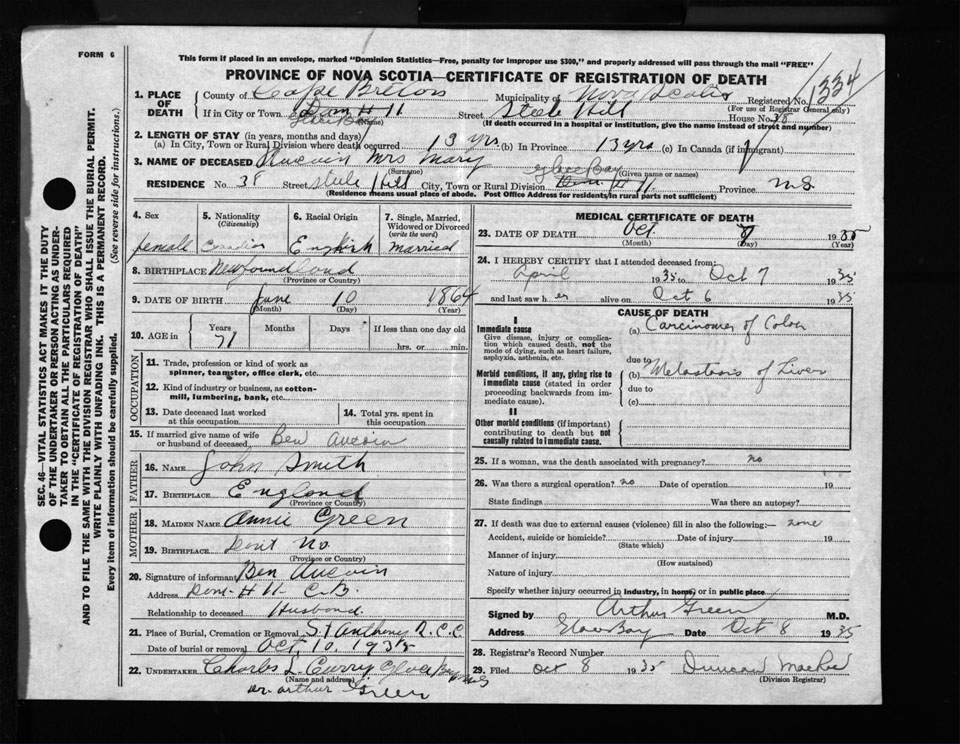 FORM 6
This form if placed in an envelope, marked "Dominion Statistics—Free, penalty for improper use $300," and properly addressed will pass through the mail "FREE"
PROVINCE OF NOVA SCOTIA—CERTIFICATE OF REGISTRATION OF DEATH
1334
1. PLACE OF DEATH
County of Cape Breton Municipality of Nova Scotia Registered No.
(For use of Registrar General only)
If in City or Town Dom #11 Glace Bay Street Steele Hill House No. 38
(Name) (If death occurred in a hospital or institution, give the name instead of street and number)
2. LENGTH OF STAY (in years, months and days)
(a) In City, Town or Rural Division where death occurred 13 yrs (b) In Province 13 yrs (c) In Canada (if immigrant)
3. NAME OF DECEASED Mrs Mary
(Surname) (Given name or names)
RESIDENCE No. 38 Street Steele Hill City, Town or Rural Division Glace Bay Dom. #11 Province N.S.
(Residence means usual place of abode. Post Office Address for residents in rural parts not sufficient)
4. Sex
female
5. Nationality
(Citizenship)
Canadian
6. Racial Origin
English
7. Single, Married, Widowed or Divorced
(write the word)
married
8. BIRTHPLACE Newfoundland
(Province or Country)
9. DATE OF BIRTH June 10 1864
(Month) (Day) (Year)
10. AGE in Years 71 Months Days If less than one day old
hrs. or min.
OCCUPATION
11. Trade, profession or kind of work as
spinner, teamster, office clerk, etc.
12. Kind of industry or business, as cotton-
mill, lumbering, bank, etc.
13. Date deceased last worked
at this occupation
14. Total yrs. spent in
this occupation
15. If married give name of wife
or husband of deceased Ben
FATHER
16. NAME John Smith
17. BIRTHPLACE England
(Province or Country)
MOTHER
18. MAIDEN NAME Annie Green
19. BIRTHPLACE Dont No
(Province or Country)
20. Signature of informant Ben
Address Dom- #11 C.B.
Relationship to deceased Husband
21. Place of Burial, Cremation or Removal St Anthonys R.C.C
Date of burial or removal Oct, 10, 1935
22. UNDERTAKER Charles L. Curry Glace Bay NS
(Name and address)
Dr. Arthur Green
MEDICAL CERTIFICATE OF DEATH
23. DATE OF DEATH Oct. 8 1935
(Month) (Day) (Year)
24. I HEREBY CERTIFY that I attended deceased from
April 1935 to Oct 7 1935
and last saw her alive on Oct 6 1935
CAUSE OF DEATH
I
Immediate cause
Give disease, injury or complica-
tion which caused death, not the
mode of dying, such as heart failure,
asphyxia, asthenia, etc.
(a) Carcinoma of Colon
due to
Morbid conditions, if any, giving rise to
immediate cause (stated in order
proceeding backwards from im-
mediate cause).
(b) Metastasis of Liver
due to
(c)
II
Other morbid conditions (if important)
contributing to death but not
causally related to immediate cause.
25. If a woman, was the death associated with pregnancy? no
26. Was there a surgical operation? no Date of operation 19
State findings Was there an autopsy?
27. If death was due to external causes (violence) fill in also the following:— none
Accident, suicide or homicide? Date of injury 19
(State which)
Manner of injury
(How sustained)
Nature of injury
Specify whether injury occurred in industry, in home, or in public place
Signed by Arthur Green M.D.
Address Glace Bay Date Oct 8 1935
28. Registrar's Record Number
29. Filed Oct 8 1935 Duncan MacRae
(Division Registrar)
SEC. 46—VITAL STATISTICS ACT MAKES IT THE DUTY
OF THE UNDERTAKER OR PERSON ACTING AS UNDER-
TAKER TO OBTAIN ALL THE PARTICULARS REQUIRED
IN THE "CERTIFICATE OF REGISTRATION OF DEATH"
AND TO FILE THE SAME WITH THE DIVISION REGISTRAR WHO SHALL ISSUE THE BURIAL PERMIT.
WRITE PLAINLY WITH UNFADING INK. THIS IS A PERMANENT RECORD.
Every item of information should be carefully supplied. (See reverse side for instructions.)